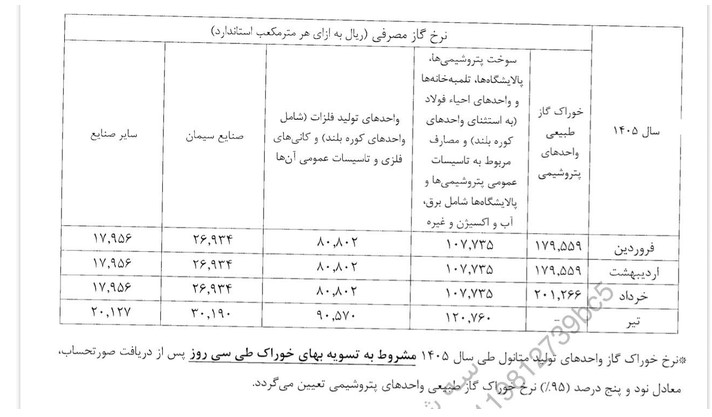 نرخ گاز مصرفی (ریال به ازای هر مترمکعب استاندارد)
سال ۱۴۰۵
خوراک گاز
طبیعی
واحدهای
پتروشیمی
سوخت پتروشیمی‌ها،
پالایشگاه‌ها، تلمبه‌خانه‌ها
و واحدهای احیاء فولاد
(به استثنای واحدهای
کوره بلند) و مصارف
مربوط به تاسیسات
عمومی پتروشیمی‌ها و
پالایشگاه‌ها شامل برق،
آب و اکسیژن و غیره
واحدهای تولید فلزات (شامل
واحدهای کوره بلند) و کانی‌های
فلزی و تاسیسات عمومی آن‌ها
صنایع سیمان
سایر صنایع
فروردین ۱۷۹,۵۵۹ ۱۰۷,۷۳۵ ۸۰,۸۰۲ ۲۶,۹۳۴ ۱۷,۹۵۶
اردیبهشت ۱۷۹,۵۵۹ ۱۰۷,۷۳۵ ۸۰,۸۰۲ ۲۶,۹۳۴ ۱۷,۹۵۶
خرداد ۲۰۱,۲۶۶ ۱۰۷,۷۳۵ ۸۰,۸۰۲ ۲۶,۹۳۴ ۱۷,۹۵۶
تیر - ۱۲۰,۷۶۰ ۹۰,۵۷۰ ۳۰,۱۹۰ ۲۰,۱۲۷
*نرخ خوراک گاز واحدهای تولید متانول طی سال ۱۴۰۵ مشروط به تسویه بهای خوراک طی سی روز پس از دریافت صورتحساب،
معادل نود و پنج درصد (۹۵٪) نرخ خوراک گاز طبیعی واحدهای پتروشیمی تعیین می‌گردد.